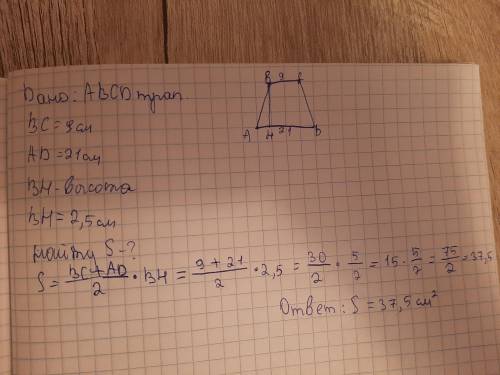 Дано: ABCD трап.
BC = 9 см
AD = 21 см
BH - высота
BH = 2,5 см
Найти S - ?
S = \frac{BC + AD}{2} · BH = \frac{9 + 21}{2} · 2,5 = \frac{30}{2} · \frac{5}{2} = 15 · \frac{5}{2} = \frac{75}{2} = 37,5
Ответ: S = 37,5 см²
B 9 C
A H 21 D